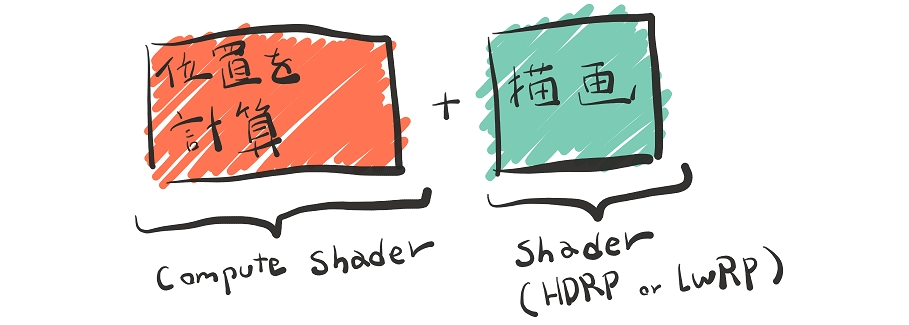 位置を
計算
+
描画
Compute Shader
Shader
(HDRP or LWRP)